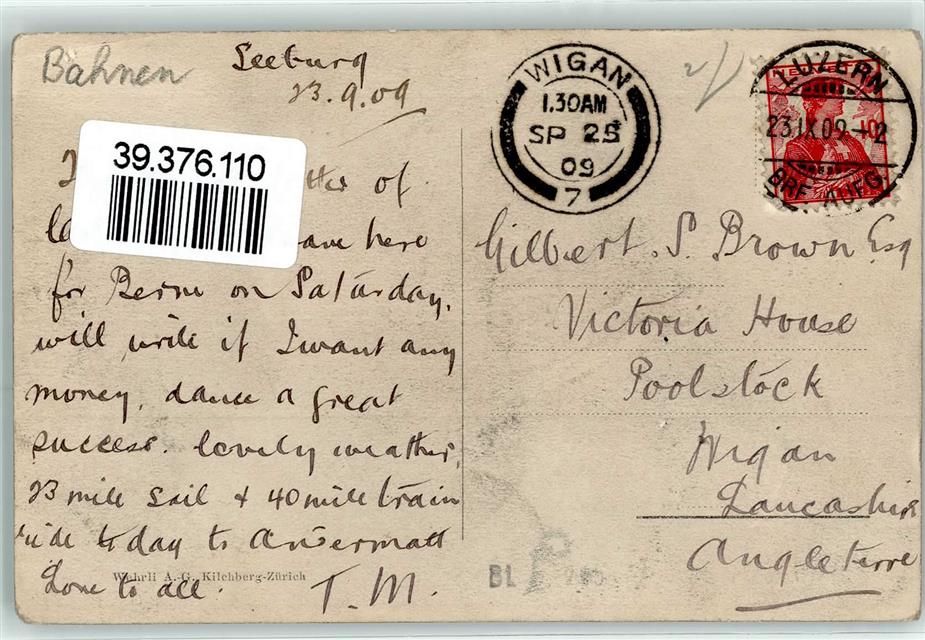 Bahnen
Seeburg
23.9.09
39.376.110
of
here
for Berne on Saturday,
will write if I want any
money, dance a great
success. lovely weather,
23 mile sail & 40 mile train
ride today to Andermatt
Love to all. T.M.
Wehrli A.-G. Kilchberg-Zürich
WIGAN
1.30AM
SP 25
09
7
LUZERN
23.IX.09.-12
BRF. AUFG.
HELVETIA
10
Gilbert. S. Brown Esq
Victoria House
Poolstock
Wigan
Lancashire
Angleterre
BL